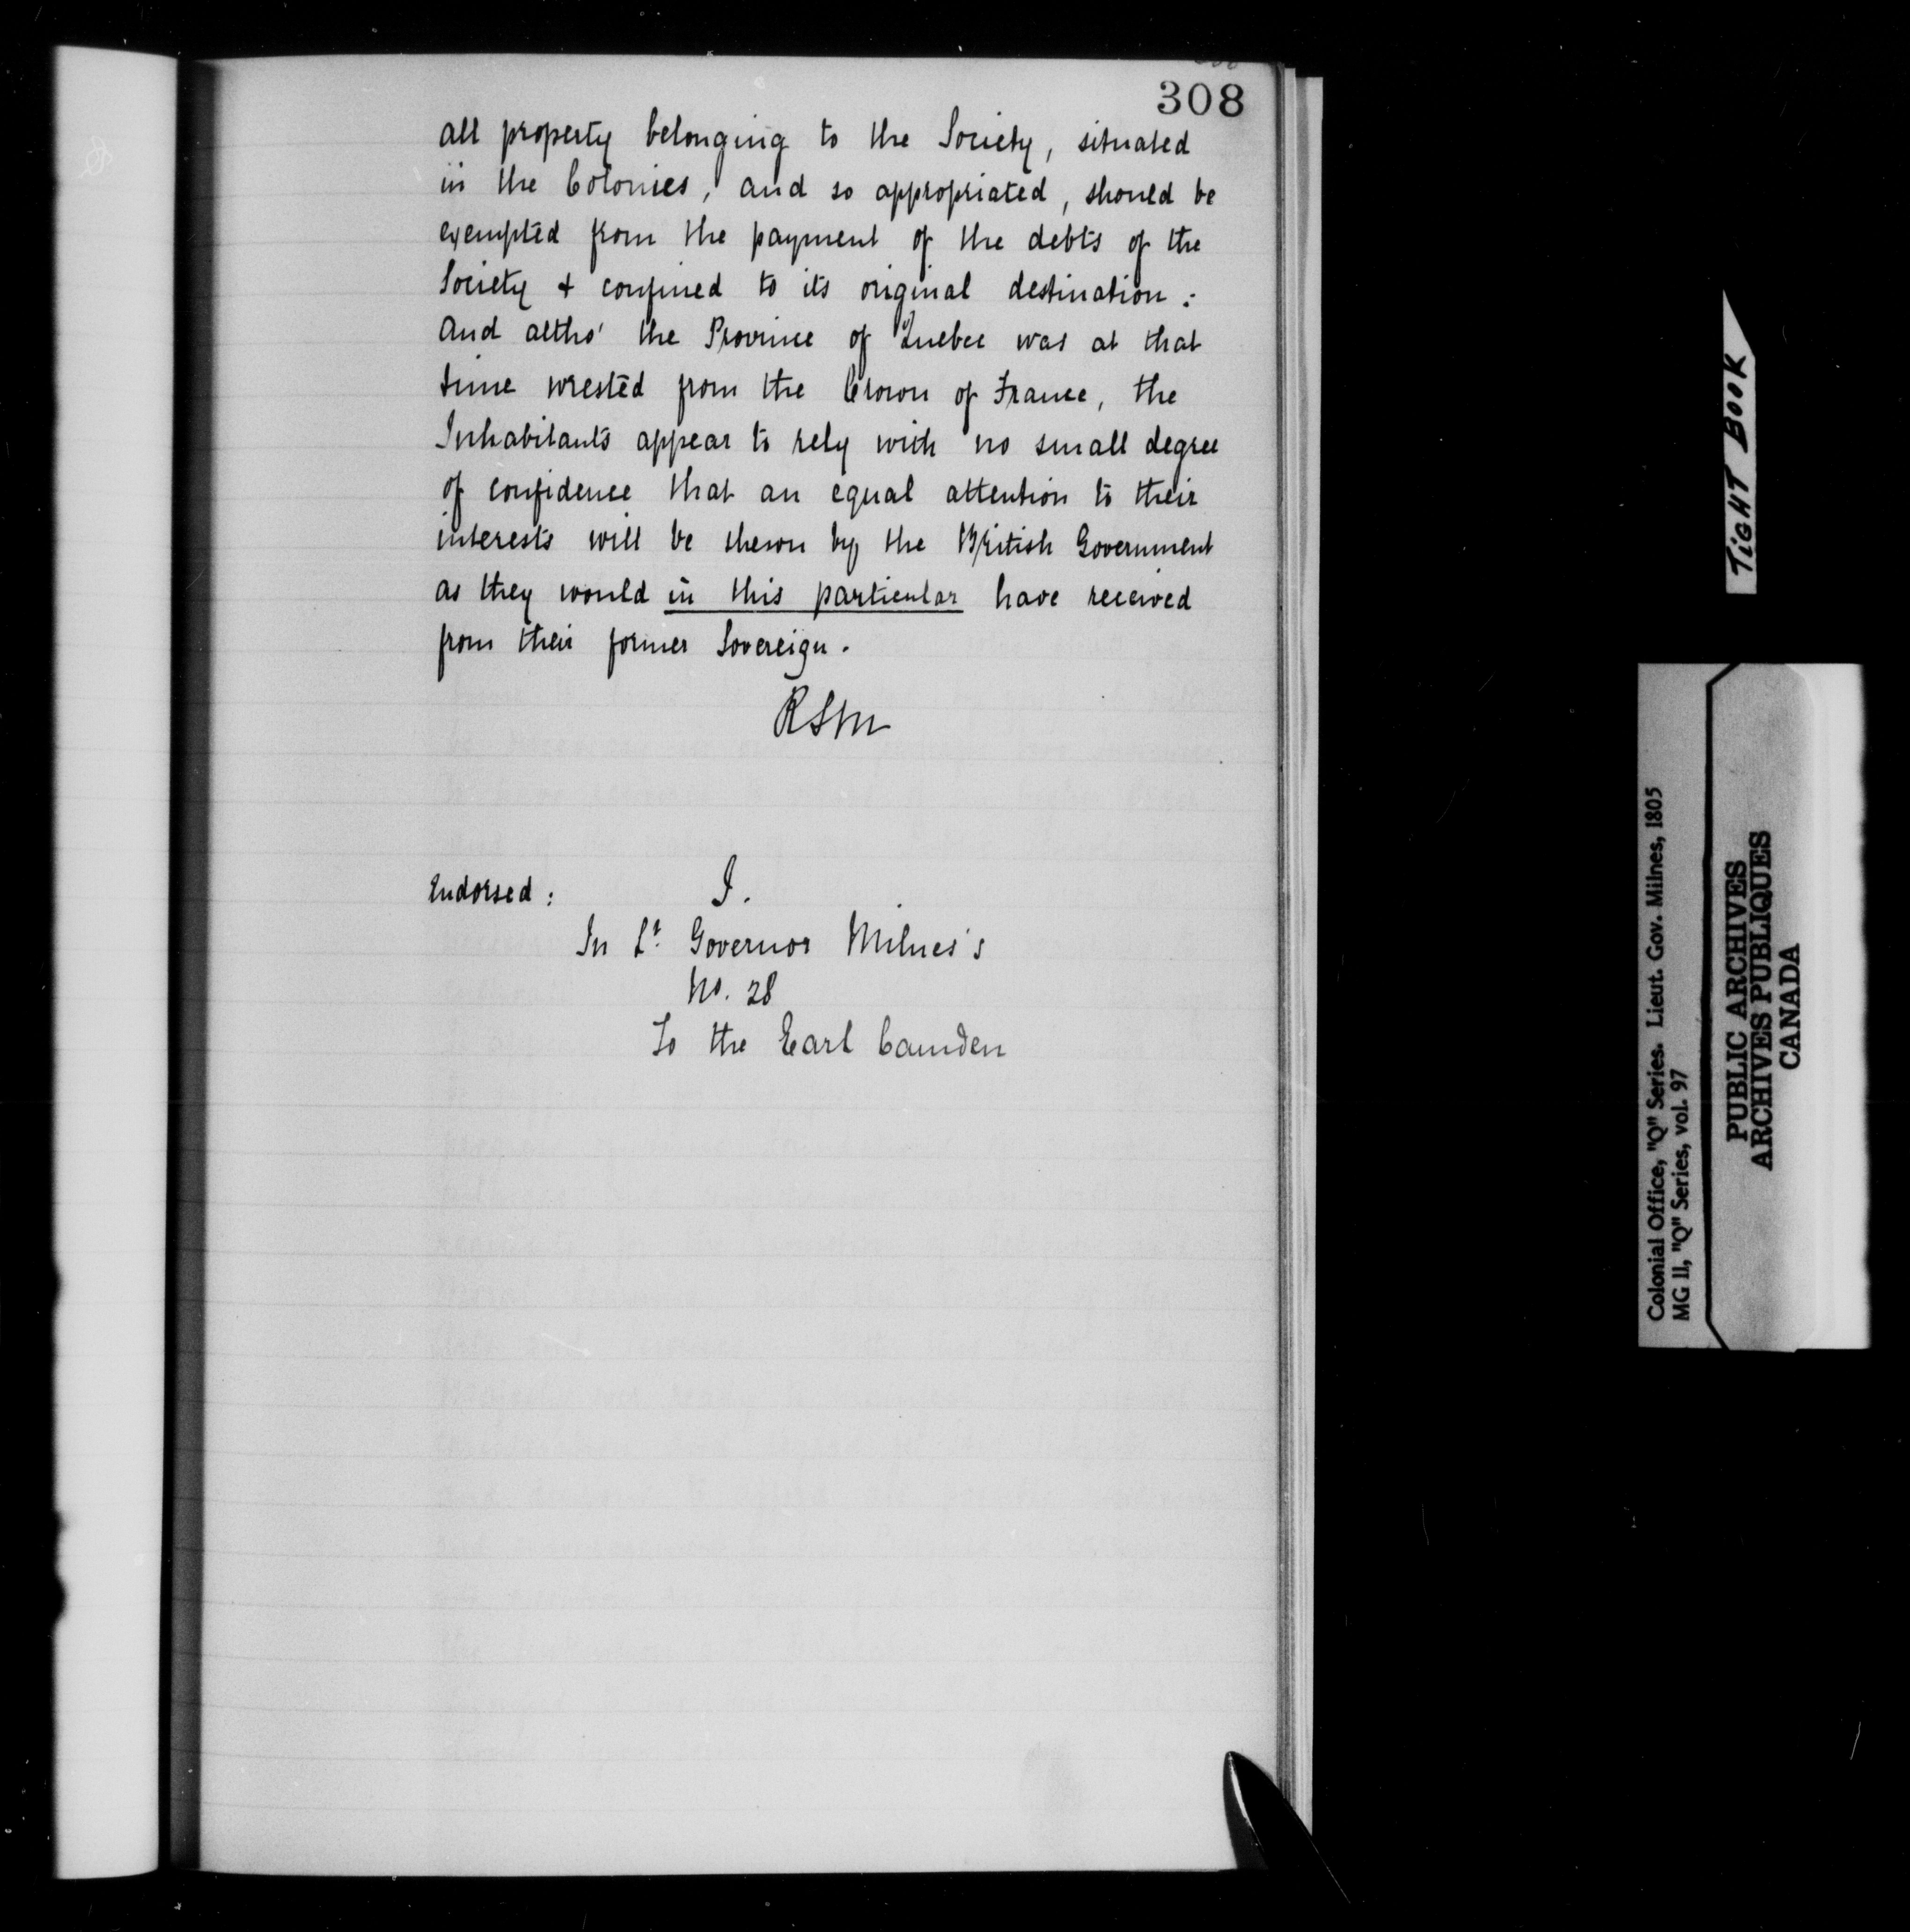 308
all property belonging to the Society, situated
in the Colonies, and so appropriated, should be
exempted from the payment of the debts of the
Society & confined to its original destination:
And altho' the Province of Quebec was at that
time wrested from the Crown of France, the
Inhabitants appear to rely with no small degree
of confidence that an equal attention to their
interests will be shewn by the British Government
as they would in this particular have received
from their former Sovereign.
RSM
Endorsed: I.
In Lt. Governor Milnes's
No. 28
To the Earl Camden
TIGHT BOOK
Colonial Office, "Q" Series. Lieut. Gov. Milnes, 1805
MG 11, "Q" Series, vol. 97
PUBLIC ARCHIVES
ARCHIVES PUBLIQUES
CANADA